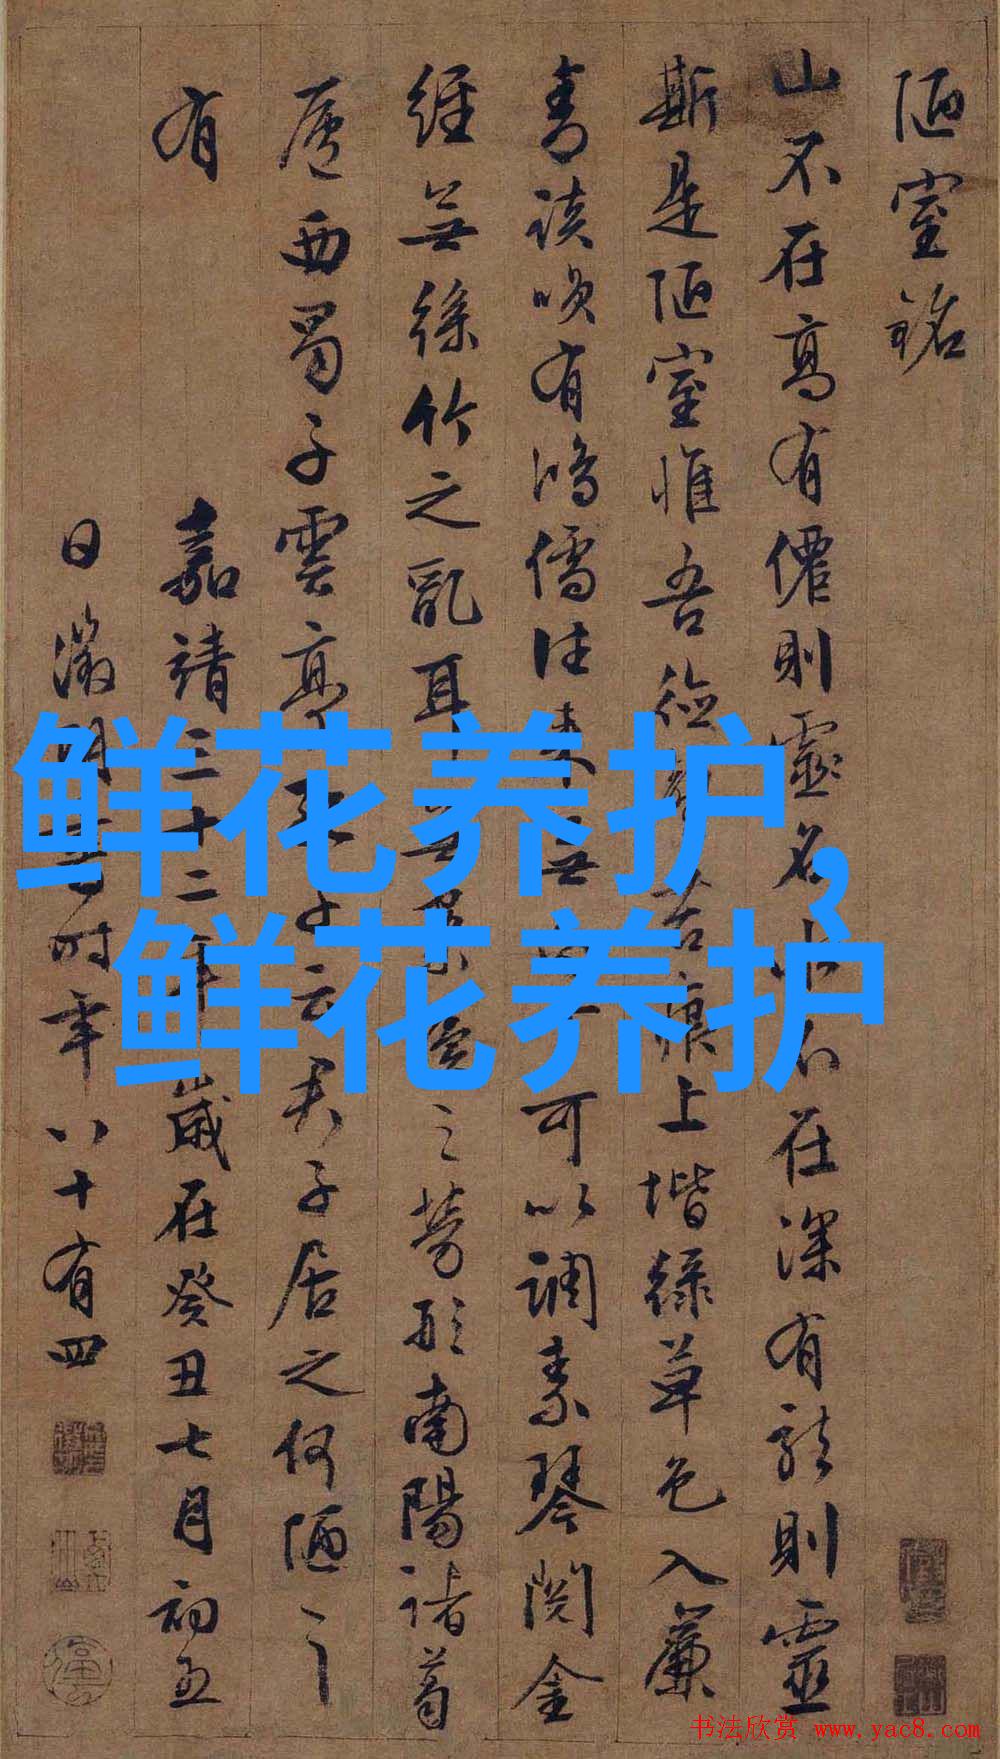 陋室銘
山不在高有僊則靈名水不在深有龍則靈
斯是陋室惟吾德馨苔痕上堦綠草色入簾
青談咲有鴻儒往来無白丁可以調素琴閱金
經無絲竹之亂耳無案牘之勞形南陽諸葛
廬西蜀子雲亭孔子云君子居之何陋之
有
嘉靖三十二年歲在癸丑七月初五
日徵明書時年八十有四
鲜花养护，
鲜花养护
书法欣赏 www.yac8.com